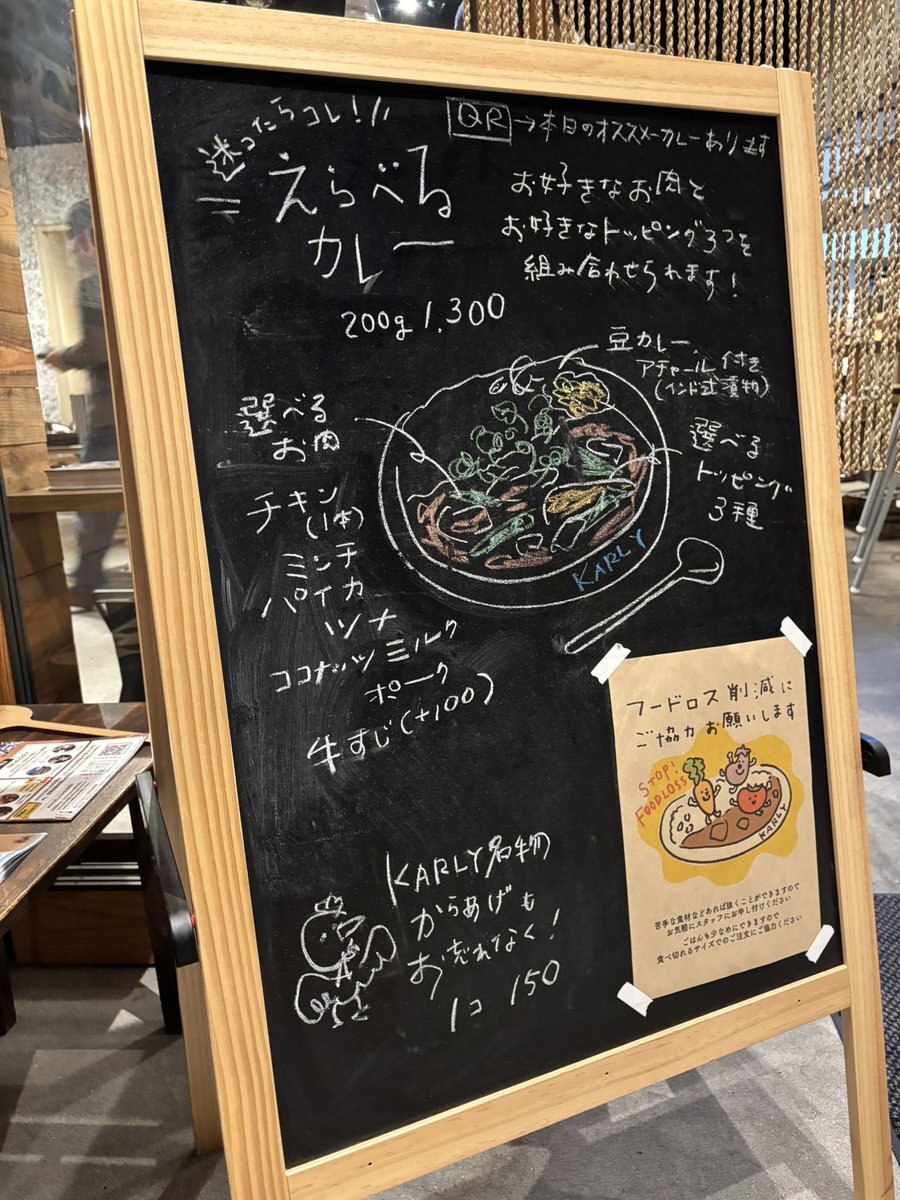 迷ったらコレ!!
QR→本日のオススメカレーあります
えらべる
カレー
200g 1,300
お好きなお肉と
お好きなトッピング3つを
組み合わせられます!
豆カレー、
アチャール付き
(インド式漬物)
選べる
お肉
チキン
(1本)
ミンチ
パイカ
ツナ
ココナッツミルク
ポーク
牛すじ(+100)
選べる
トッピング
3種
KARLY
フードロス削減に
ご協力お願いします
STOP!
FOODLOSS
KARLY
苦手な食材などあれば抜くことができますので
お気軽にスタッフにお申し付けください
ごはんも少なめにできますので
食べ切れるサイズでのご注文にご協力ください
KARLY名物
からあげも
お忘れなく!
1コ 150